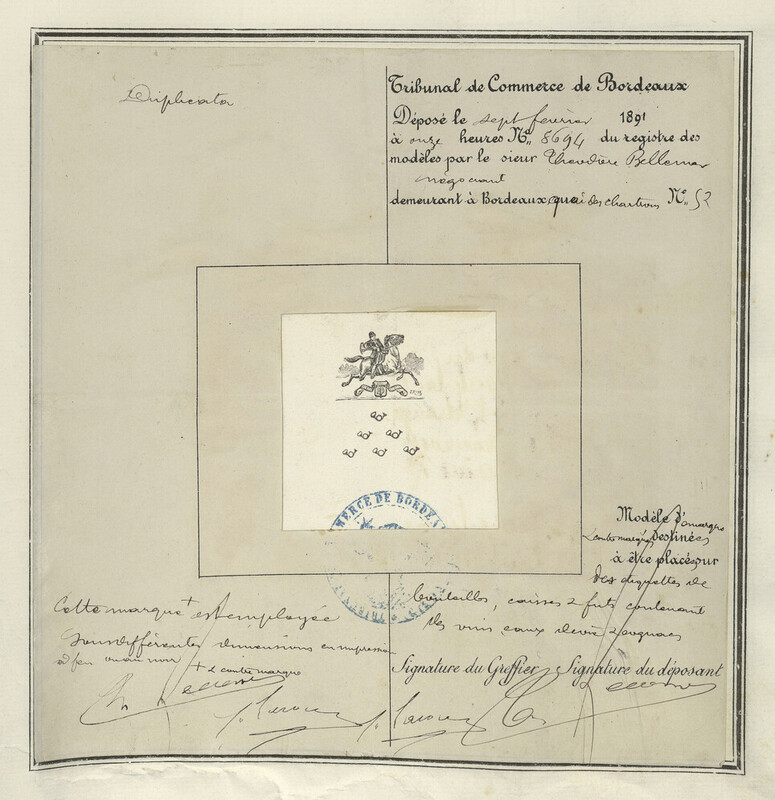 Duplicata
Tribunal de Commerce de Bordeaux
Déposé le sept fevrier 1891
à onze heures N° 8694 du registre des
modèles par le sieur Theodore Bellemer
négociant
demeurant à Bordeaux quai des chartrons N° 52
COMMERCE DE BORDEAUX
Modèle d marque
& contremarque Destinées
à être placé sur
des etiquettes de
bouteilles, caisses & futs contenant
des vins eaux de vie & cognacs
Cette marque + est employée
sous différentes dimensions en impression
à feu ou au noir
+ & contremarque
Signature du Greffier Signature du déposant